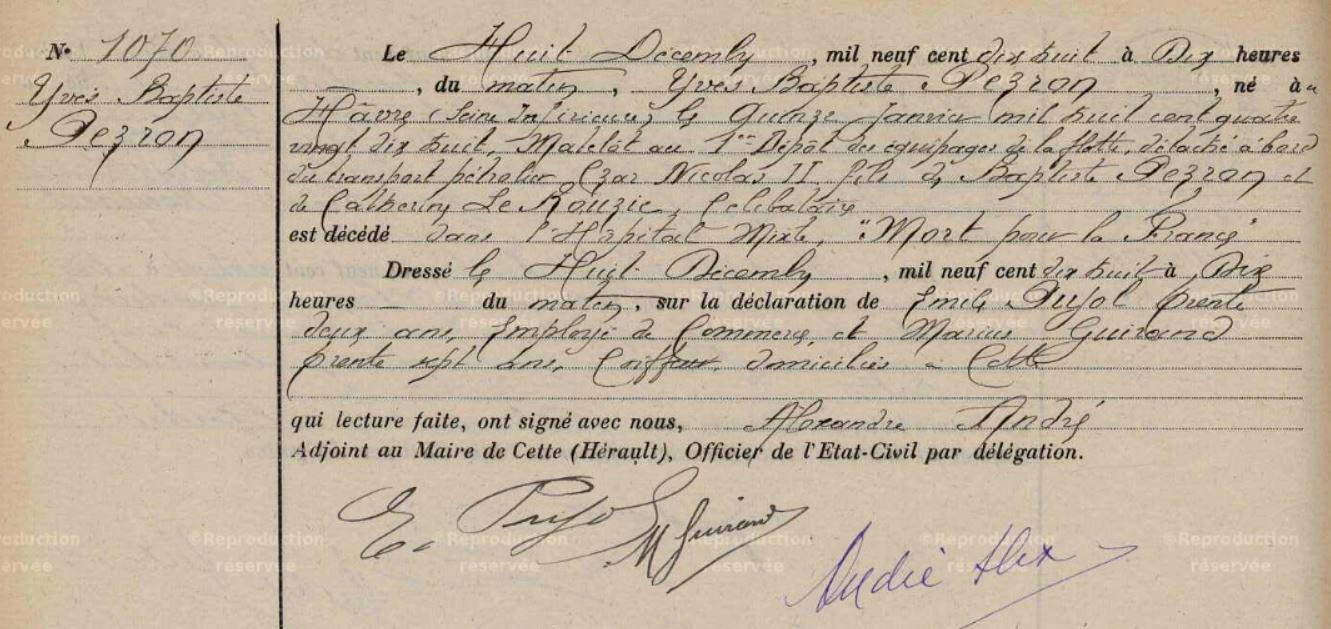 N° 1070
Yves Baptiste
Pezron
Le Huit Décembre, mil neuf cent dix huit à Dix heures
, du matin, Yves Baptiste Pezron, né à
Hâvre (Seine Inférieure) le Quinze Janvier mil huit cent quatre
vingt dix huit, Matelot au 1er Dépôt des équipages de la flotte, détaché à bord
du transport pétrolier Czar Nicolas II fils de Baptiste Pezron et
de Catherine Le Rouzic, Célibataire
est décédé dans l'Hôpital Mixte, "Mort pour la France"
Dressé le Huit Décembre, mil neuf cent dix huit à Dix
heures — du matin, sur la déclaration de Emile Pujol trente
deux ans, Employé de Commerce, et Marius Guiraud
trente sept ans, Coiffeur, domiciliés à Cette
qui lecture faite, ont signé avec nous, Alexandre André
Adjoint au Maire de Cette (Hérault), Officier de l'Etat-Civil par délégation.
E. Pujol
M Guiraud
André Alex
©Reproduction réservée